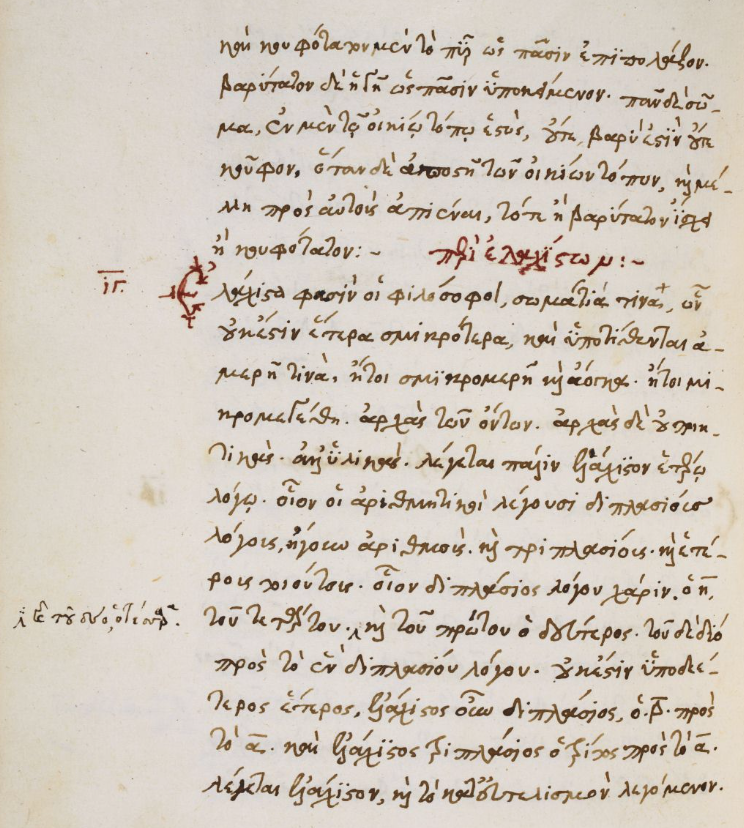 καὶ κουφότατον μὲν τὸ πῦρ ὡς πᾶσιν ἐπιπολάζον·
βαρύτατον δὲ ἡ γῆ ὡς πᾶσιν ὑποκείμενον· πᾶν δὲ σῶ-
μα, ἐν μὲν τῷ οἰκείῳ τόπῳ ἑστὼς, οὔτε βαρύ ἐστιν οὔτε
κοῦφον, ὅταν δὲ ἀποστῇ τῶν οἰκείων τόπων, καὶ μέ-
λλη πρὸς αὐτοὺς ἀπιέναι, τότε ἢ βαρύτατον
ἢ κουφότατον:~ περὶ ἐλαχίστου:~
ιγ. Ἐλάχιστα φασὶν οἱ φιλόσοφοι, σωμάτιά τινα, ὧν
οὐκ ἔστιν ἕτερα σμικρότερα, καὶ ὑποτίθενται ἀ-
μερῆ τινὰ, ἤτοι σμικρομερῆ καὶ ἄογκα· ἤτοι μι-
κρομεγέθη· ἀρχὰς τῶν ὄντων· ἀρχὰς δὲ οὐ ποιη-
τικὰς· ἀλλ' ὑλικὰς· λέγεται πάλιν ἐλάχιστον ἑτέρῳ
λόγῳ· οἷον οἱ ἀριθμητικοὶ λέγουσι διπλασίους
λόγους, ἤγουν ἀριθμοὺς· καὶ τριπλασίους· καὶ ἑτέ-
ρους τοιούτους· οἷον διπλάσιος λόγου χάριν, ὁ η,
τοῦ τετάρτου· καὶ τοῦ πρώτου ὁ δεύτερος· τοῦ δὲ δύο
τοῦ δύο, ὁ τέταρτος.
πρὸς τὸ ἓν διπλασίου λόγου· οὐκ ἔστιν ὑποδεέ-
τερος ἕτερος, ἐλάχιστος οὕτω διπλάσιος, ὁ β̅ πρὸς
τὸ α̅· καὶ ἐλάχιστος τριπλάσιος ὁ τρίτος πρὸς τὸ α̅·
λέγεται ἐλάχιστον, καὶ τὸ κατ' εὐτελισμὸν λεγόμενον·